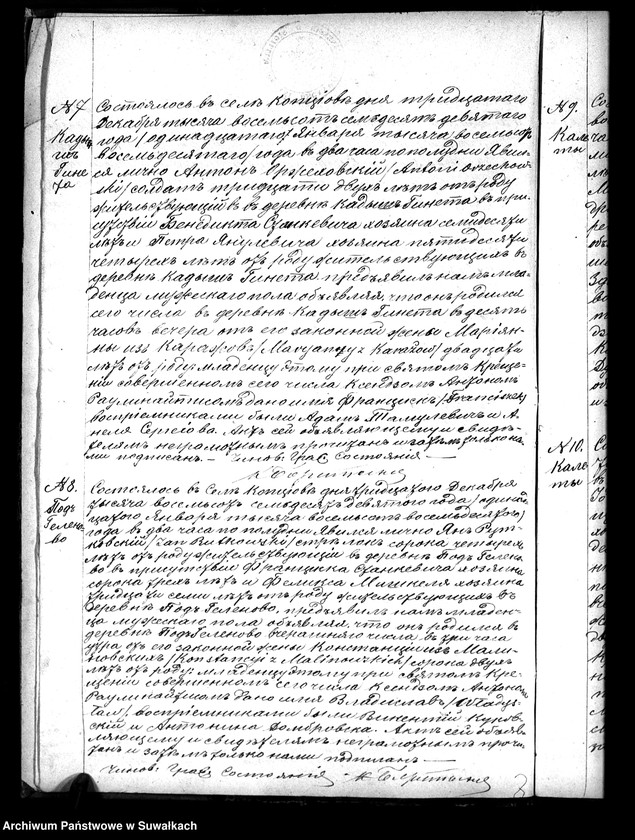 № 7
Кадыш
гинета
Состоялось въ селѣ Копціовѣ дня тридцатаго
Декабря тысяча восемьсотъ семьдесятъ девятаго
года /одинадцатаго Января тысяча восемьсотъ
восемьдесятаго/ года въ два часа по полудни Явил-
ся лично Антонъ Оржеховскій /Antoni Orzechow-
ski/ солдатъ тридцати двухъ лѣтъ отъ роду
жительствующій въ деревнѣ Кадышъ Гинета въ при-
сутствіи Бенедикта Станкевича хозяина семидесяти
лѣтъ и Петра Янулевича хозяина пятидесяти
четырехъ лѣтъ отъ роду жительствующихъ въ
деревнѣ Кадышъ Гинета предъявилъ намъ мла-
денца мужескаго пола объявляя, что онъ родился
сего числа въ деревнѣ Кадышъ Гинета въ десять
часовъ вечера отъ его законной жены Маріян-
ны изъ /Maryanny z двадцати
лѣтъ отъ роду. младенцу этому при святомъ Креще-
ніи совершенномъ сего числа Ксендзомъ Антономъ
дано имя Францискъ /Franciszek/
воспріемниками были Адамъ и А-
неля Сергіова. Актъ сей объявляющему и свидѣ-
телямъ неграмотнымъ прочитанъ и затѣмъ только на-
ми подписанъ. — Чинов: Граж: Состоянія —
№ 8.
Подъ
Геленово
Состоялось въ Селѣ Копціовѣ дня тридцатаго Декабря
тысяча восемьсотъ семьдесятъ девятаго года /одинад-
цатаго Января тысяча восемьсотъ восемьдесятаго/
года въ два часа по полудни Явился лично Янъ Рут-
ковскій /Jan Rutkowski/ стрѣлокъ сорока четырехъ
лѣтъ отъ роду жительствующій въ деревнѣ Подъ Гелено-
во въ присутствіи Францишка Станкевича хозяина
сорока трехъ лѣтъ и Феликса хозяина
тридцати семи лѣтъ отъ роду жительствующихъ въ
деревнѣ Подъ Геленово, предъявилъ намъ младен-
ца мужескаго пола объявляя, что онъ родился въ
деревнѣ Подъ Геленово вчерашняго числа въ три часа
утра отъ его законной жены Констанціи изъ Мали-
новскихъ /Konstancyi z Malinowskich/ сорока двухъ
лѣтъ отъ роду: младенцу этому при святомъ Кре-
щеніи совершенномъ сего числа Ксендзомъ Антономъ
дано имя Владиславъ
воспріемниками были Викентій Куров-
скій и Антонина Домбровска. Актъ сей объяв-
ляющему и свидѣтелямъ неграмотнымъ прочи-
танъ и затѣмъ только нами подписанъ —
Чинов: Граж: Состоянія —
№ 9.
Каль
ты
№ 10.
Каль
ты
Archiwum Państwowe w Suwałkach